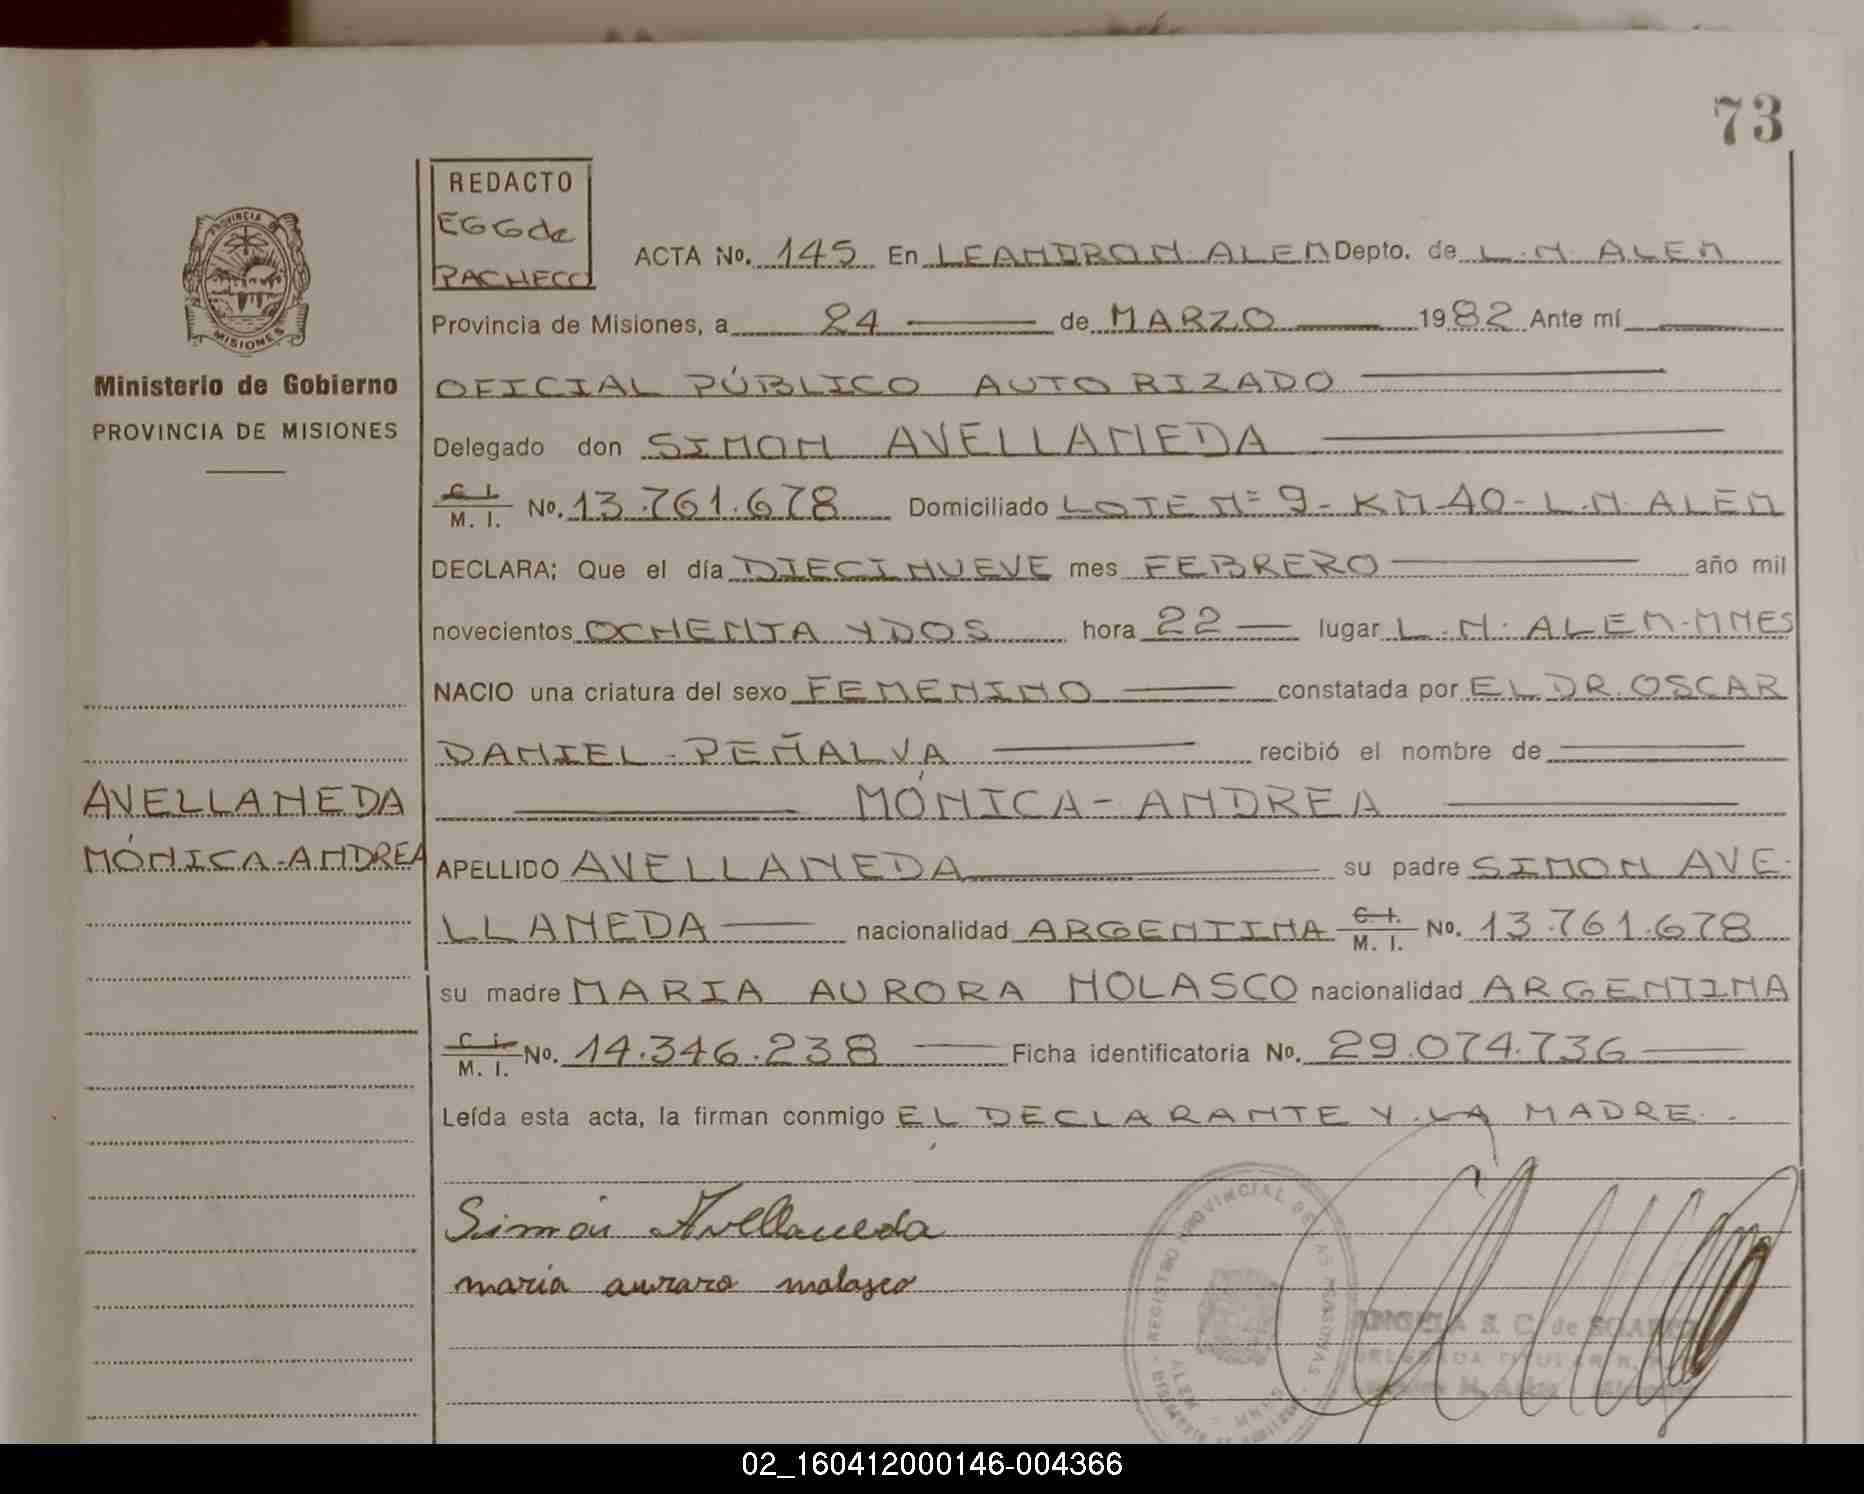 73
REDACTO
EGGde
PACHECO
PROVINCIA DE
MISIONES
Ministerio de Gobierno
PROVINCIA DE MISIONES
ACTA No. 145 En LEANDRO N. ALEM Depto. de L.N. ALEM
Provincia de Misiones, a 24 de MARZO 1982 Ante mí
OFICIAL PÚBLICO AUTORIZADO
Delegado don SIMON AVELLANEDA
C. I.
M. I. No. 13.761.678 Domiciliado LOTE Nº 9- KM-40- L.N. ALEM
DECLARA; Que el día DIECINUEVE mes FEBRERO año mil
novecientos OCHENTA Y DOS hora 22 lugar L.N. ALEM-MNES
NACIO una criatura del sexo FEMENINO constatada por EL DR. OSCAR
DANIEL-PEÑALVA recibió el nombre de
MÓNICA-ANDREA
AVELLANEDA
MÓNICA-ANDREA
APELLIDO AVELLANEDA su padre SIMON AVE-
LLANEDA nacionalidad ARGENTINA C. I. M. I. No. 13.761.678
su madre MARIA AURORA NOLASCO nacionalidad ARGENTINA
C. I.
M. I. No. 14.346.238 Ficha identificatoria No. 29.074.736
Leída esta acta, la firman conmigo EL DECLARANTE Y LA MADRE.
Simón Avellaneda
maria auraro nolasco
REGISTRO PROVINCIAL DE LAS PERSONAS
ALEM
MNES
ANGELA S. C. de SOAREZ
DELEGADA TITULAR R. P.
02_160412000146-004366